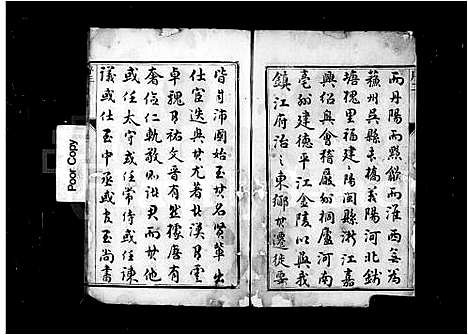 而丹陽而黟歙而淮西無為
蘇州吳縣志橋義陽河北
塘槐里福建陽閩縣浙江嘉
興紹興會稽嚴州桐廬河南
亳州建德平江金陵以與我
鎮江府治之東鄉其遷徙要
皆自沛國始至其名賢輩出
仕宦迭興其尤著者漢有雲
卓魏有祐文音有然據唐有
奮信仁軌敬則諸君而其他
或任太守或任常侍或任諫
議或仕至中丞或官至尚書
Poor Copy